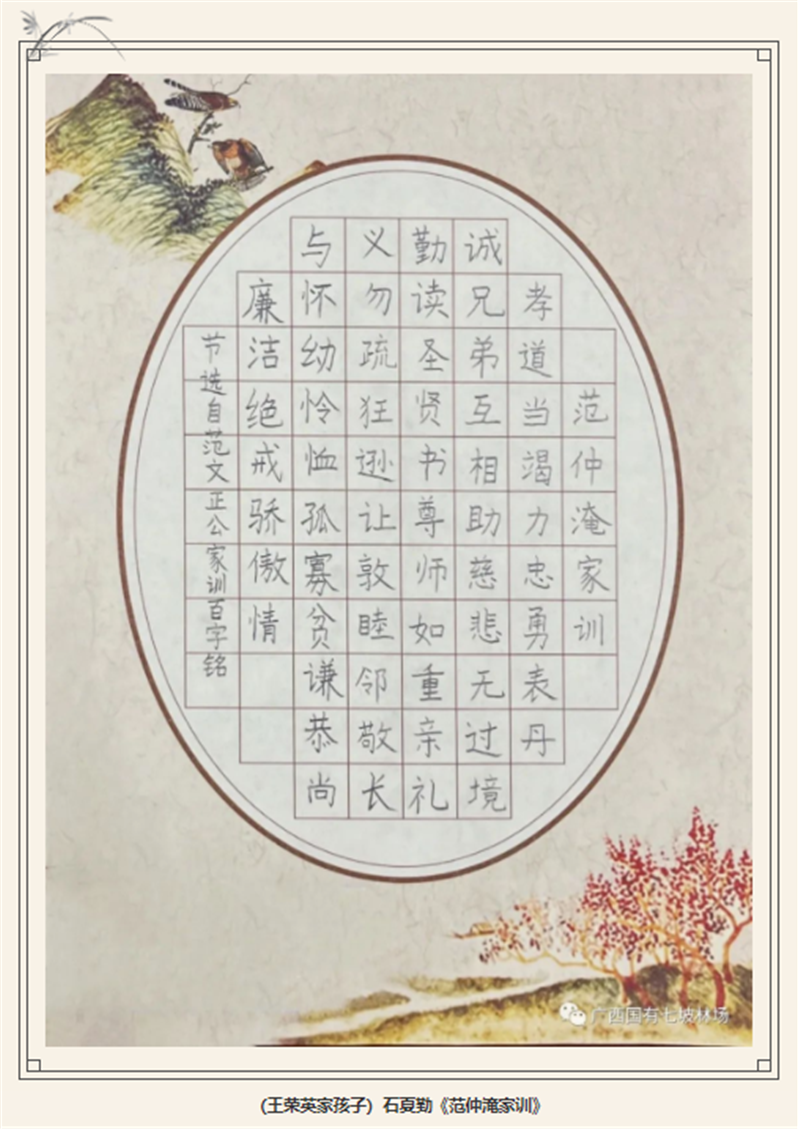 范仲淹家训
孝道当竭力忠勇表丹
诚兄弟互相助慈悲无过境
勤读圣贤书尊师如重亲礼
义勿疏狂逊让敦睦邻敬长
与怀幼怜恤孤寡贫谦恭尚
廉洁绝戒骄傲情
节选自范文正公家训百字铭
广西国有七坡林场
(王荣英家孩子）石夏勤《范仲淹家训》